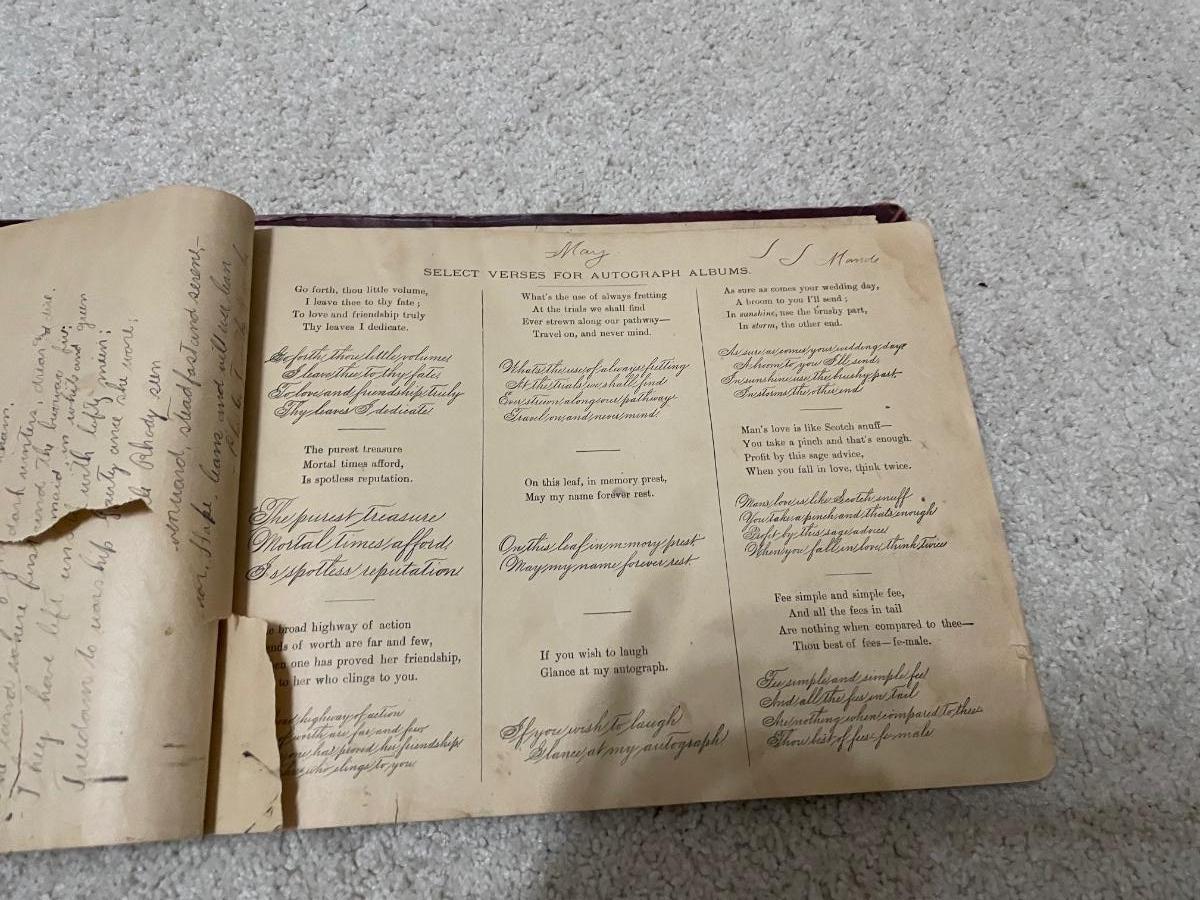 May
Maude
SELECT VERSES FOR AUTOGRAPH ALBUMS.
Go forth, thou little volume,
I leave thee to thy fate;
To love and friendship truly
Thy leaves I dedicate.
Go forth, thou little volume
I leave thee to thy fate
To love and friendship truly
Thy leaves I dedicate
The purest treasure
Mortal times afford,
Is spotless reputation.
The purest treasure
Mortal times afford,
Is spotless reputation
broad highway of action
of worth are far and few,
one has proved her friendship,
to her who clings to you.
highway of action
worth are far and few
one has proved her friendship
who clings to you
What's the use of always fretting
At the trials we shall find
Ever strewn along our pathway—
Travel on, and never mind.
Whats the use of always fretting
At the trials we shall find
Ever strewn along our pathway
Travel on and never mind.
On this leaf, in memory prest,
May my name forever rest.
On this leaf in memory prest
May my name forever rest.
If you wish to laugh
Glance at my autograph.
If you wish to laugh
Glance at my autograph
As sure as comes your wedding day,
A broom to you I'll send;
In sunshine, use the brushy part,
In storm, the other end.
As sure as comes your wedding day
A broom to you I'll send,
In sunshine use the brushy part
In storms the other end
Man's love is like Scotch snuff—
You take a pinch and that's enough.
Profit by this sage advice,
When you fall in love, think twice.
Mans love is like Scotch snuff
You take a pinch and thats enough
Profit by this sage advice
When you fall in love think twice
Fee simple and simple fee,
And all the fees in tail
Are nothing when compared to thee—
Thou best of fees—fe-male.
Fee simple and simple fee
And all the fees in tail
Are nothing when compared to thee
Thou best of fees fe male
dark winters, drear
in white and green
with lofty mien;
she wore;
They have left
to worship
Rhody seen
steadfast and serene,